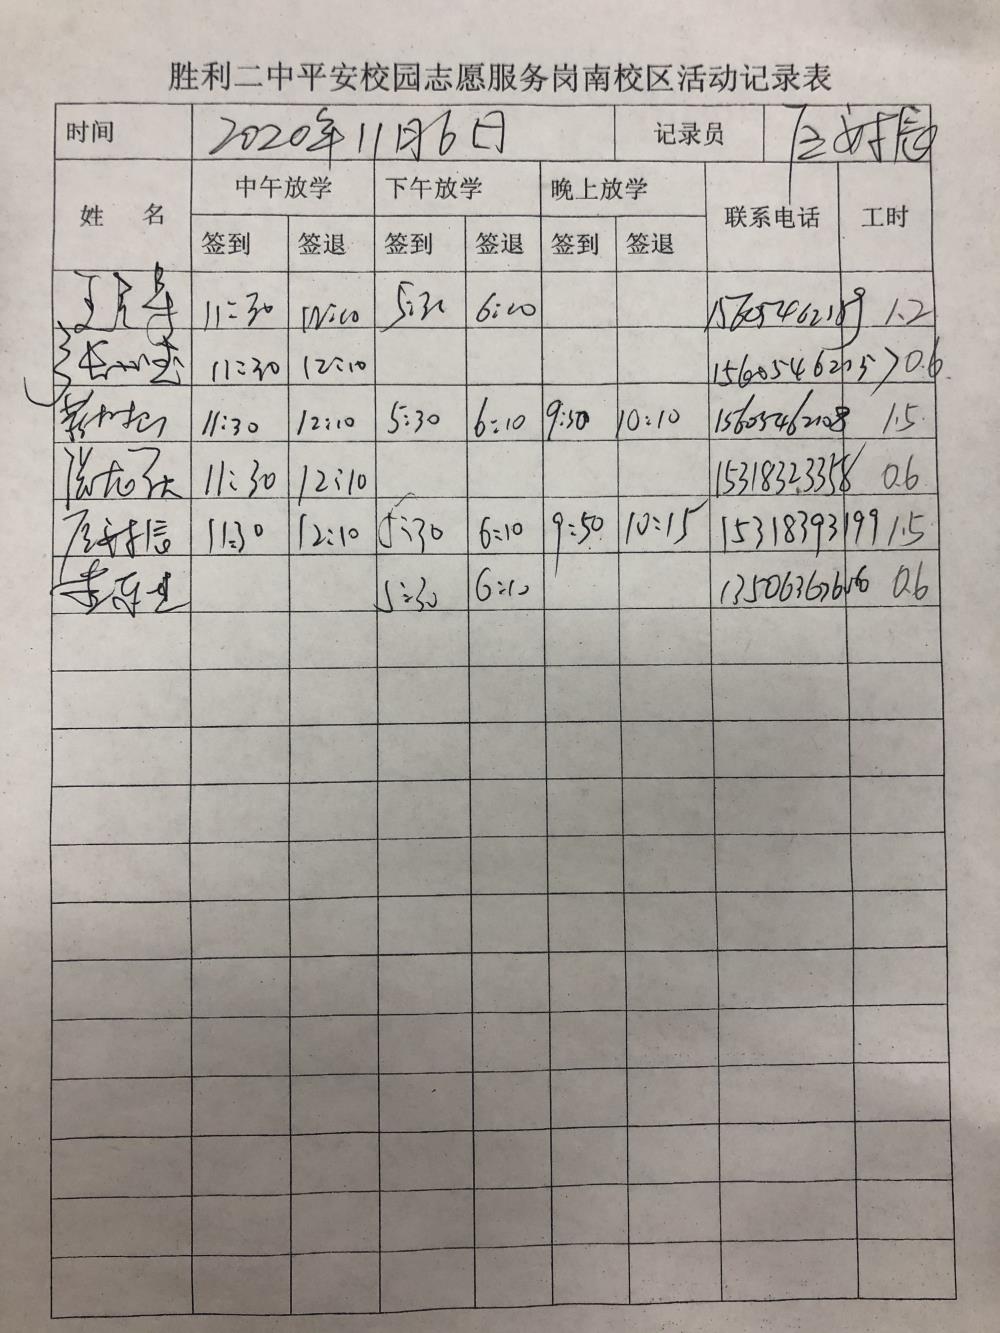 胜利二中平安校园志愿服务岗南校区活动记录表
时间 2020年11月6日 记录员
姓 名 中午放学 下午放学 晚上放学 联系电话 工时
签到 签退 签到 签退 签到 签退
11:30 12:10 5:30 6:10 15605462189 1.2
11:30 12:10 0.6
11:30 12:10 5:30 6:10 9:50 10:10 15605462108 1.5
11:30 12:10 15318323358 0.6
11:30 12:10 5:30 6:10 9:50 10:15 15318393199 1.5
5:30 6:10 0.6